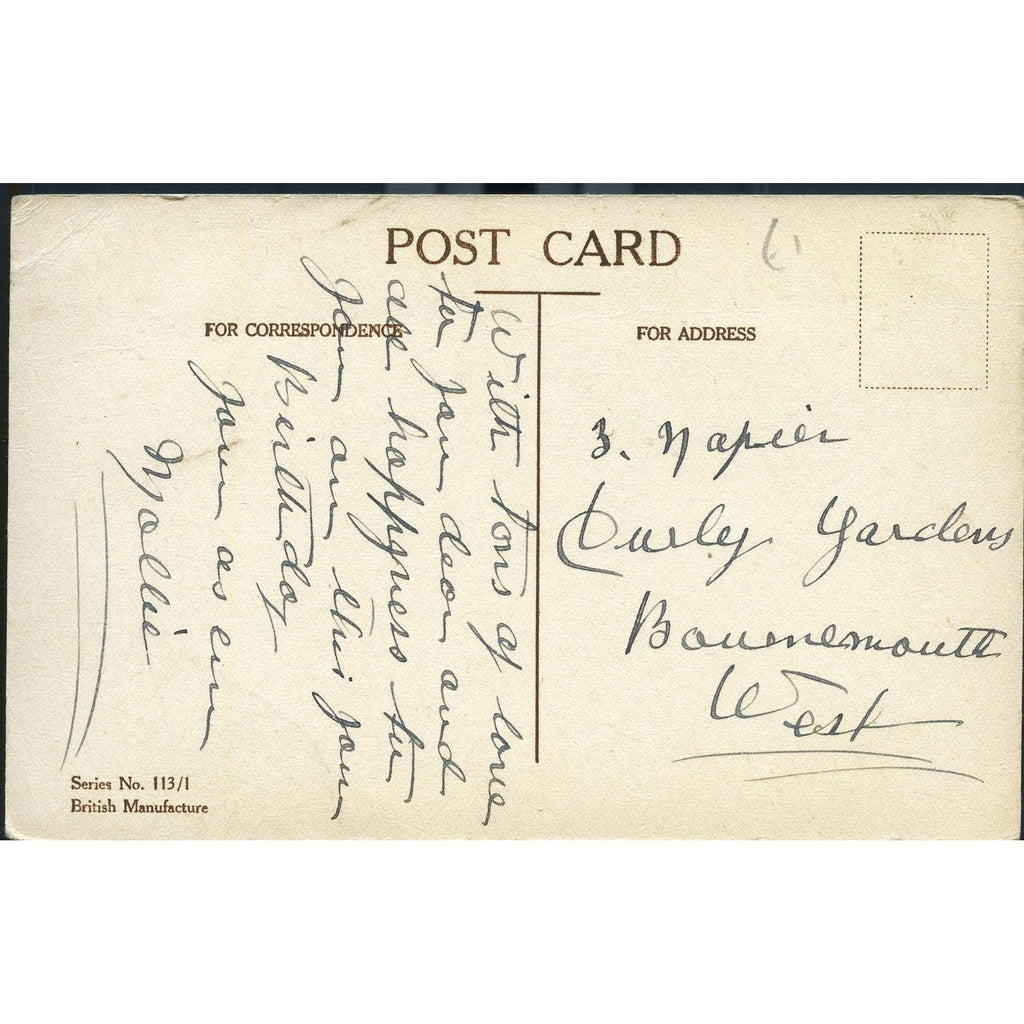 POST CARD
FOR CORRESPONDENCE
FOR ADDRESS
With tons of love
to you dear and
all happyness to
you on this your
Birthday
Your as ever
Mollie
3. Napier
Curly Gardens
Bournemouth
West
Series No. 113/1
British Manufacture